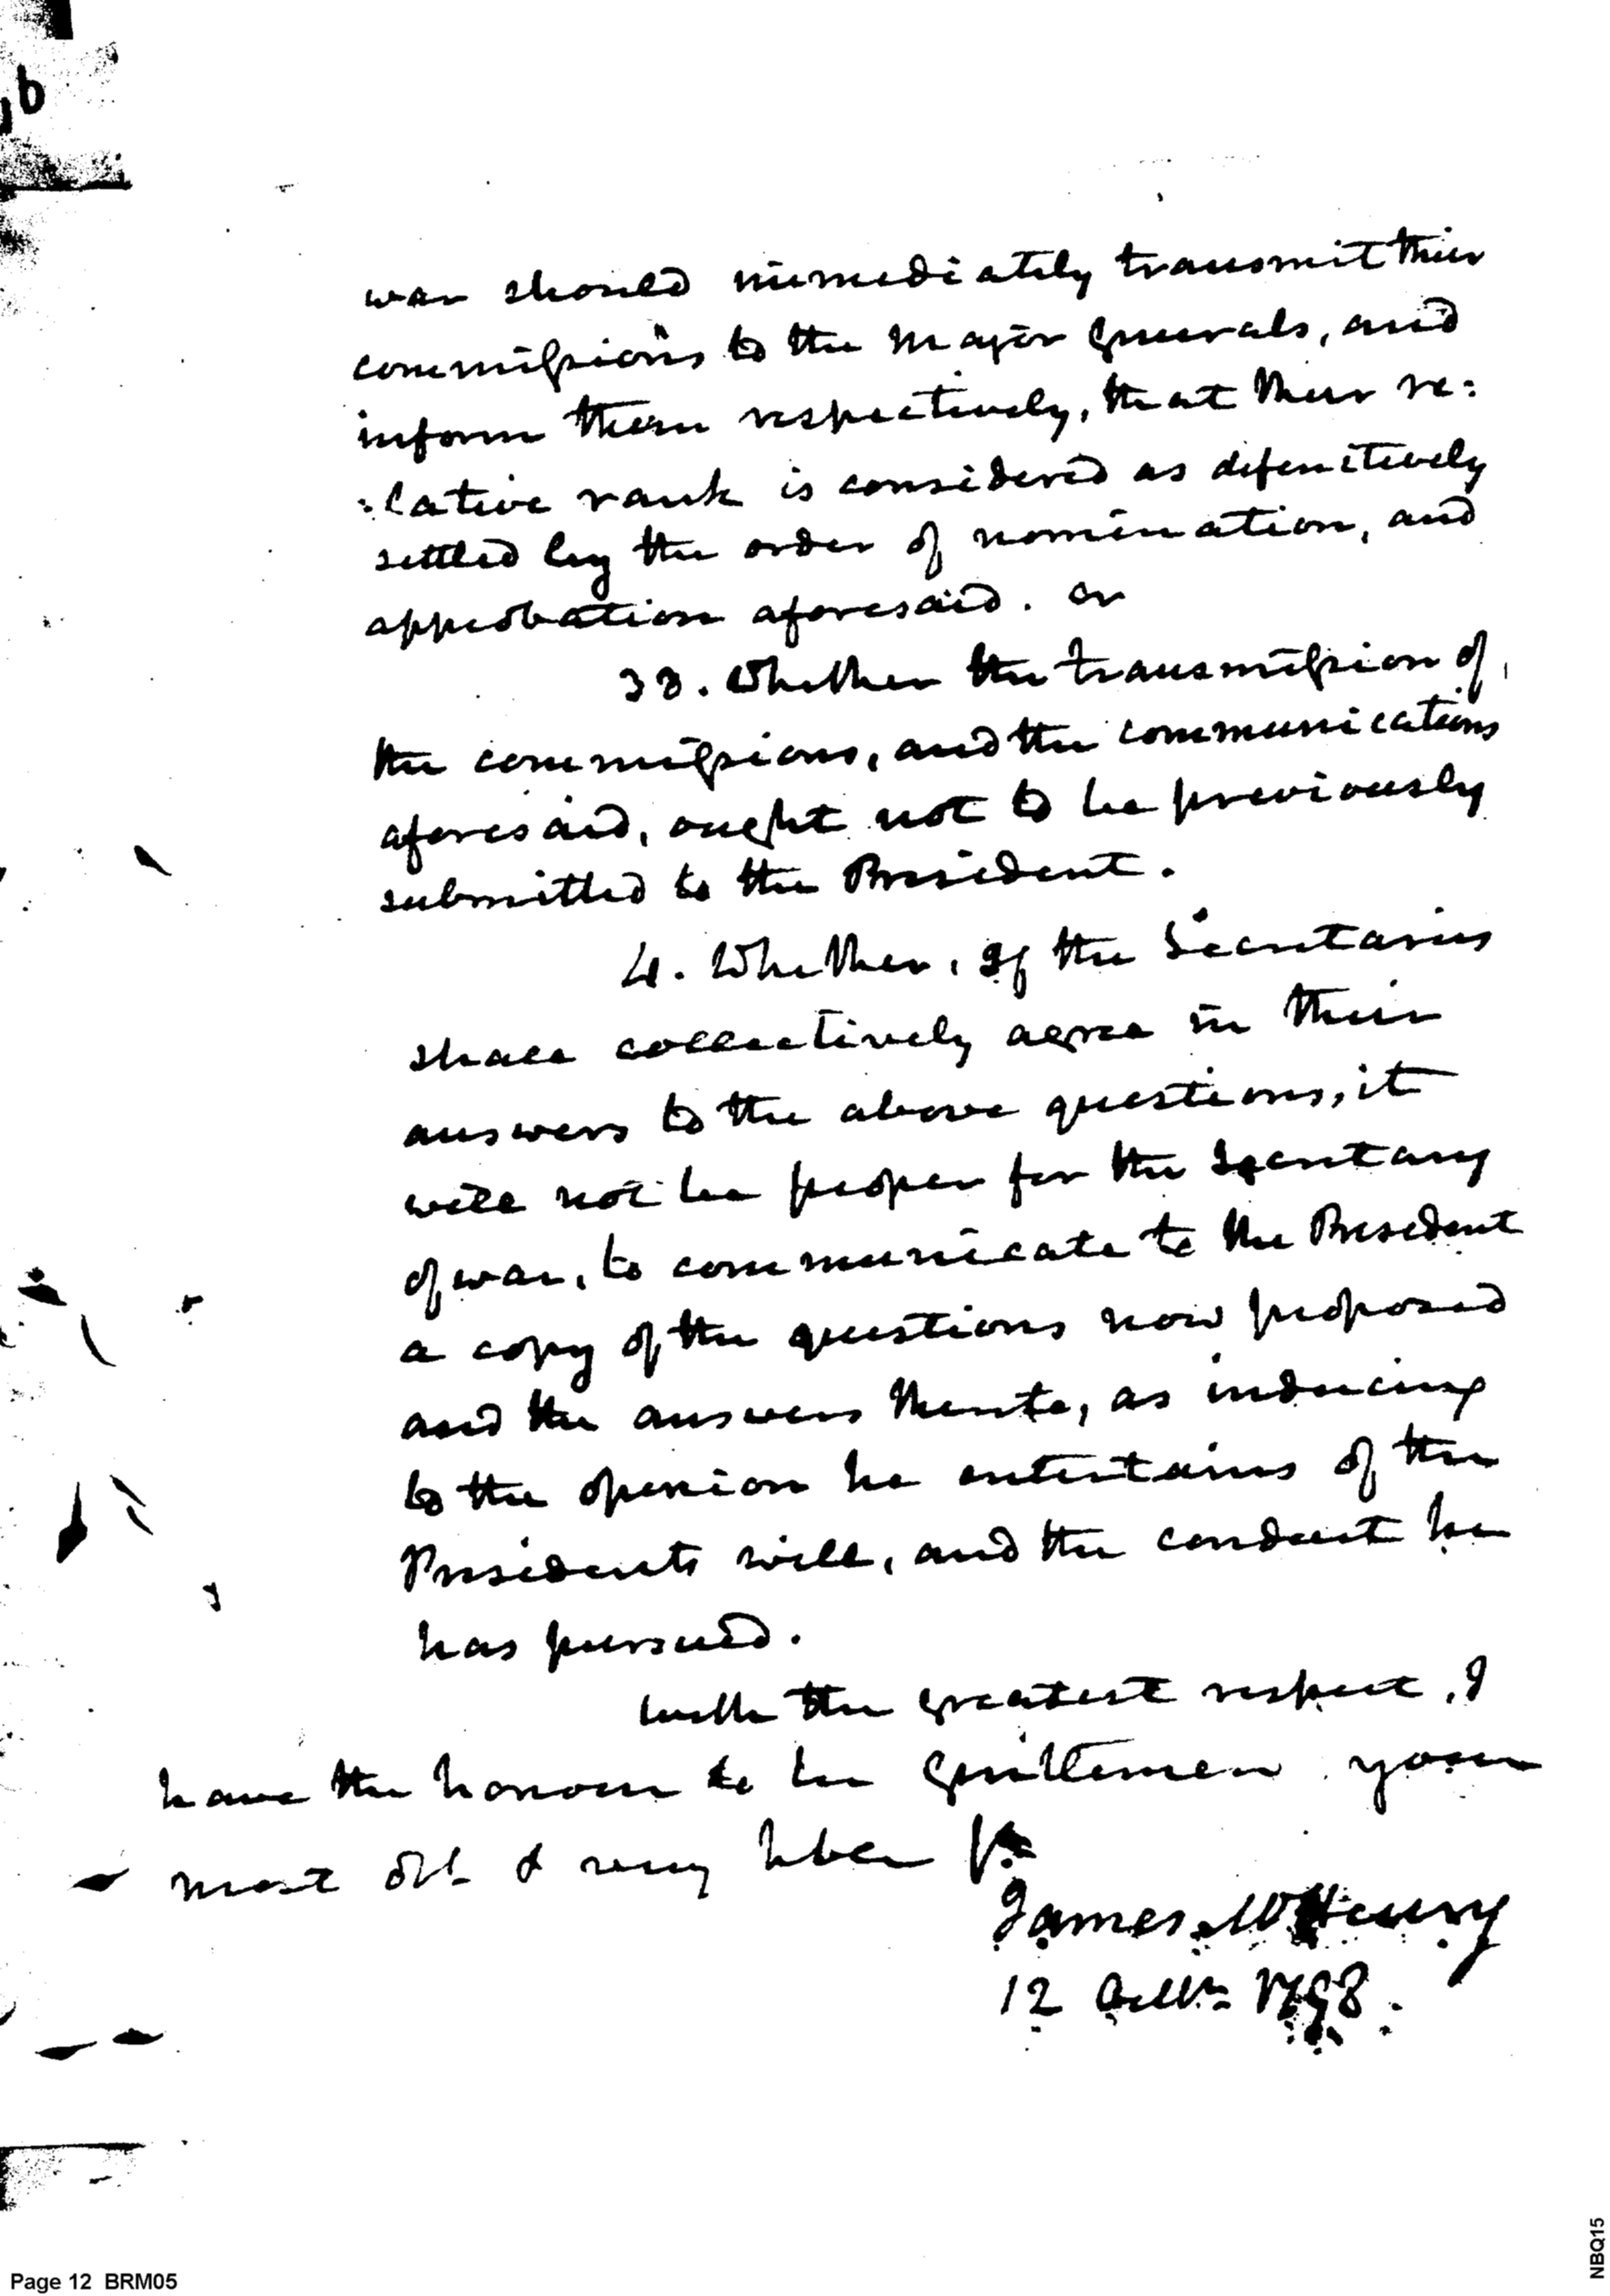 b
war should immediately transmit their
commissions to the Major Generals, and
inform them respectively, that their re:
:lative rank is considered as definitively
settled by the order of nomination, and
approbation aforesaid. or
3d. Whether the transmission of
the commissions, and the communications
aforesaid, ought not to be previously
submitted to the President.
4. Whether, If the Secretaries
shall collectively agree in their
answers to the above questions, it
will not be proper for the Secretary
of war, to communicate to the President
a copy of the questions now proposed
and the answers thereto, as inducing
to the opinion he entertains of the
Presidents will, and the conduct he
has pursued.
With the greatest respect, I
have the honour to be Gentlemen your
most obt & very hble
James McHenry
12 Octbr 1798.
Page 12 BRM05
NBQ15